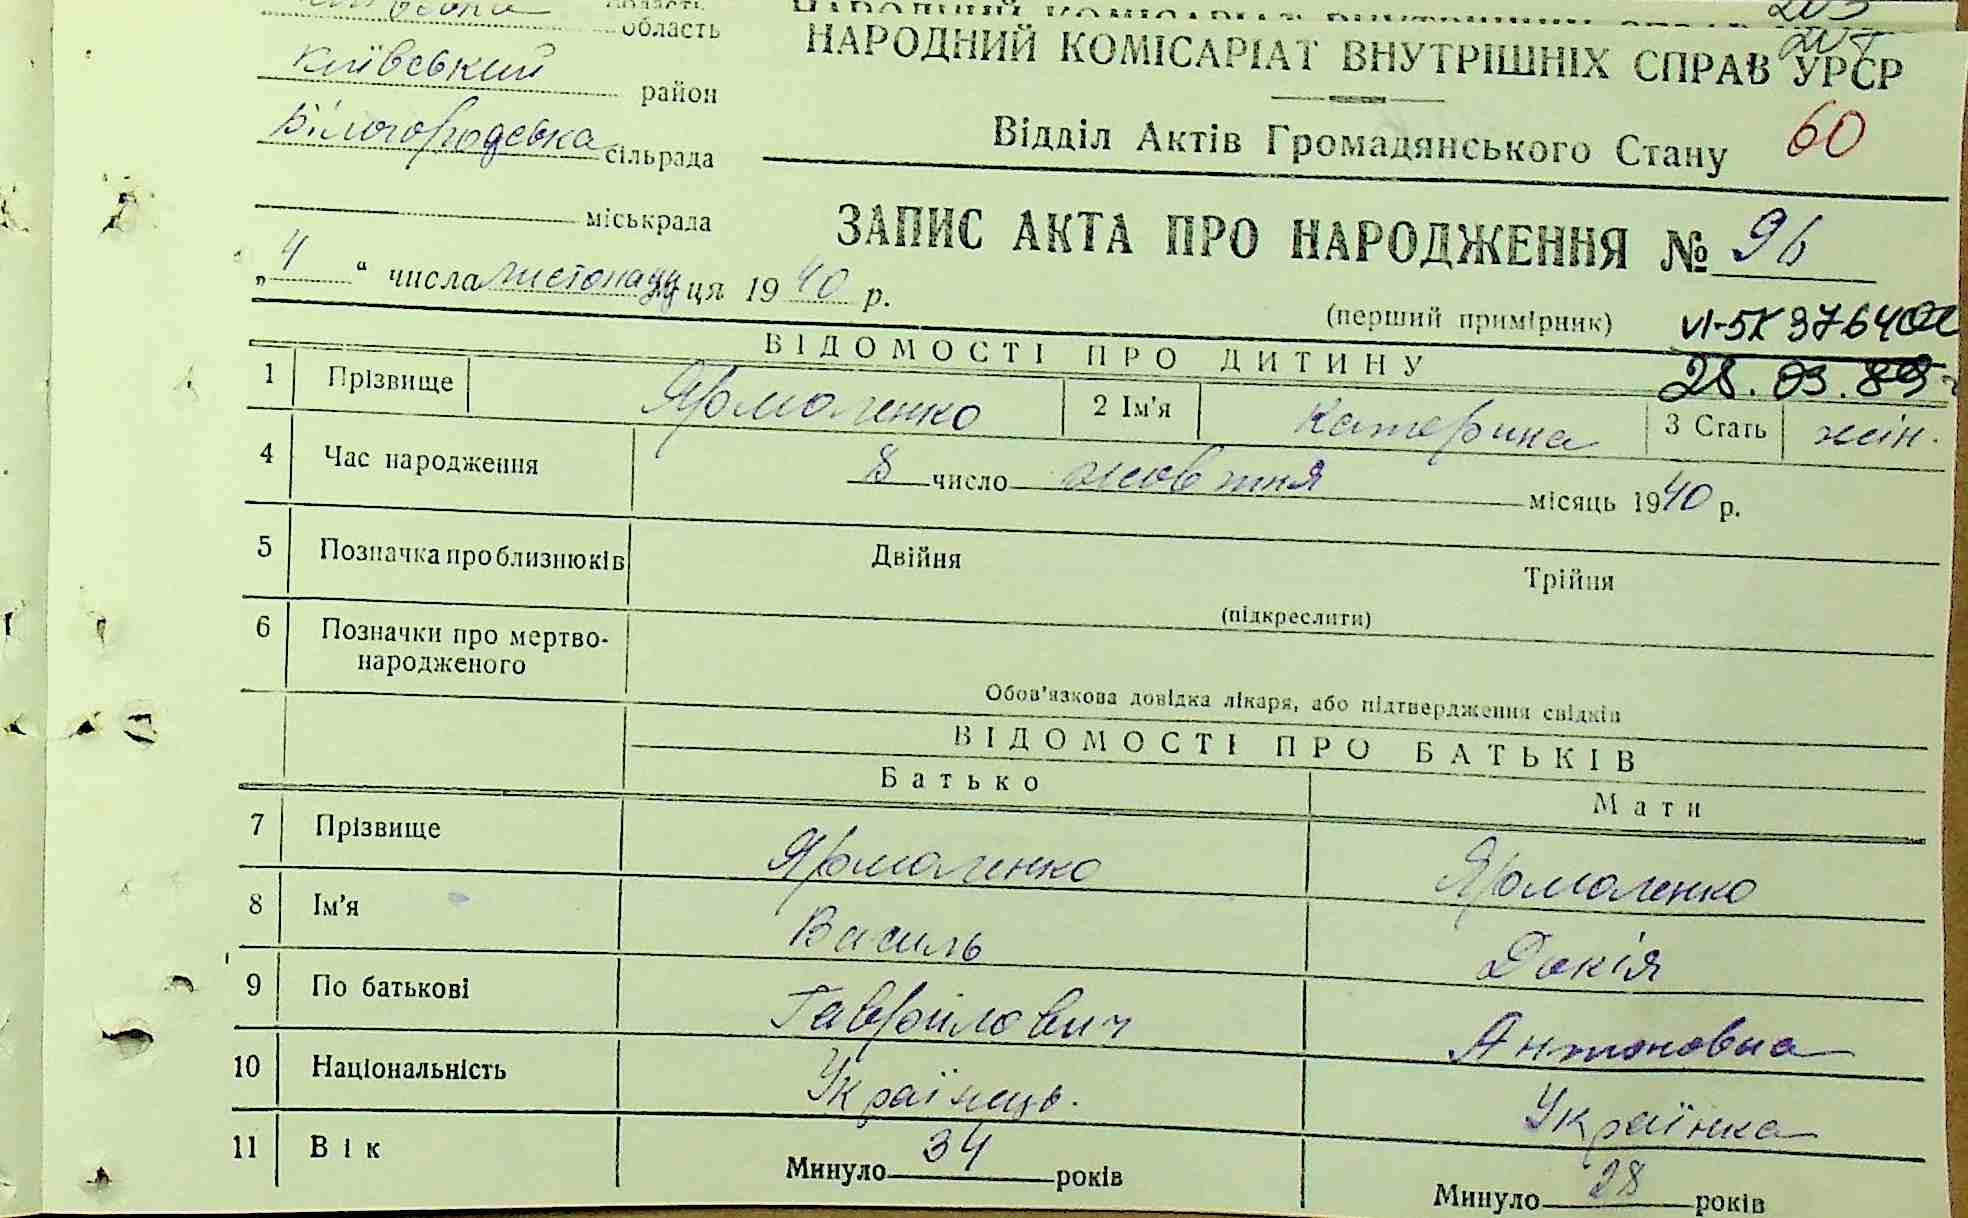 область
область
Київський район
Білогородська сільрада
міськрада
„4“ числа листопада ця 1940 р.
НАРОДНИЙ КОМІСАРІАТ ВНУТРІШНІХ СПРАВ УРСР
Відділ Актів Громадянського Стану
60
ЗАПИС АКТА ПРО НАРОДЖЕННЯ № 96
(перший примірник)
VI-5К 376402
28.03.89
ВІДОМОСТІ ПРО ДИТИНУ
1 Прізвище Ярмоленко 2 Ім'я Катерина 3 Стать жін.
4 Час народження 8 число жовтня місяць 1940 р.
5 Позначка про близнюків Двійня Трійня
(підкреслити)
6 Позначки про мертво-
народженого
Обов'язкова довідка лікаря, або підтвердження свідків
ВІДОМОСТІ ПРО БАТЬКІВ
Батько Мати
7 Прізвище Ярмоленко Ярмоленко
8 Ім'я Василь Докія
9 По батькові Гаврілович Антоновна
10 Національність Українець. Українка
11 Вік Минуло 34 років Минуло 28 років